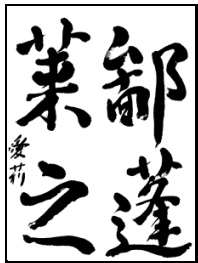 鄙蓬
莱之
愛莉